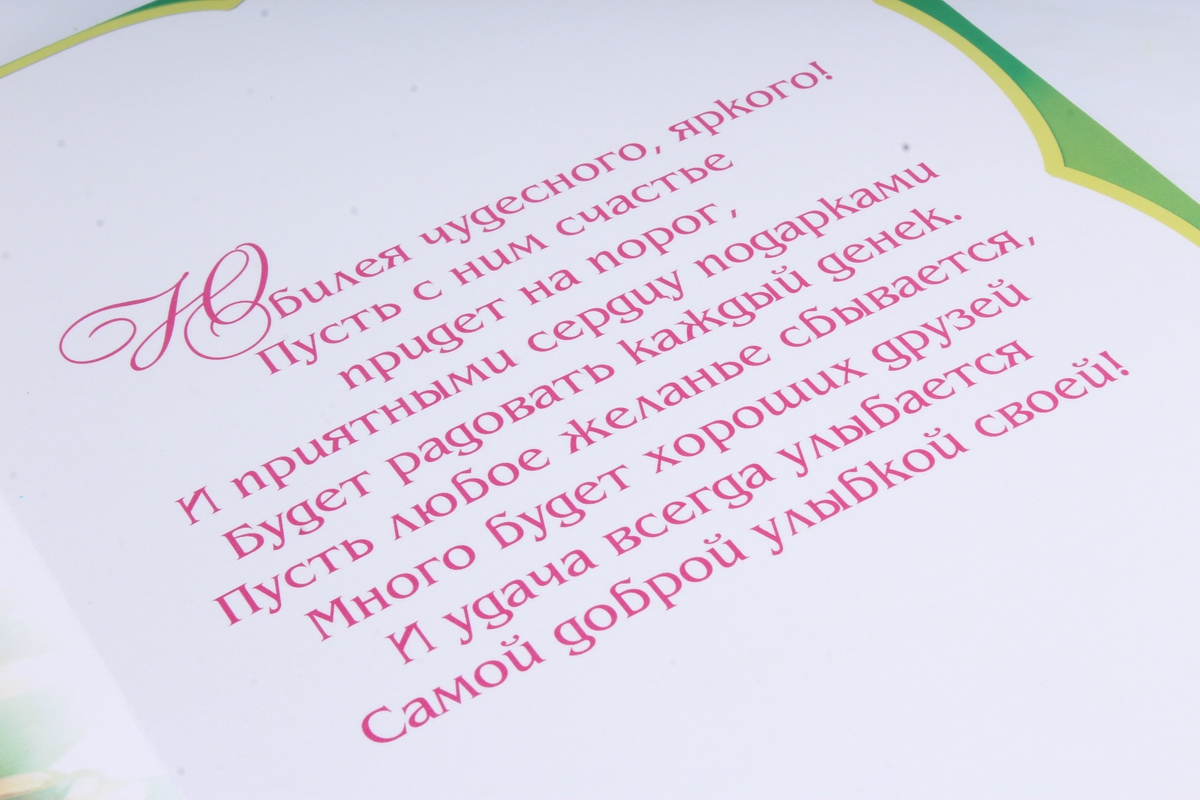 Юбилея чудесного, яркого!
Пусть с ним счастье
придет на порог,
И приятными сердцу подарками
Будет радовать каждый денек.
Пусть любое желанье сбывается,
Много будет хороших друзей
И удача всегда улыбается
Самой доброй улыбкой своей!